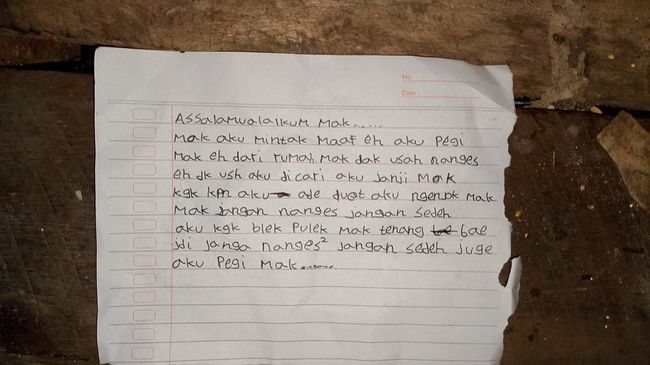 No.
Date:
Assalamualaikum Mak......
Mak aku mintak maaf eh aku pegi
Mak eh dari rumah, Mak dak usah nanges
eh dk ush aku dicari aku janji Mak
kgk kpn aku ade duet aku ngenjok Mak
Mak jangan nanges jangan sedeh
aku kgk blek pulek Mak tenang bae
jdi janga nanges² jangan sedeh juge
aku pegi Mak.........